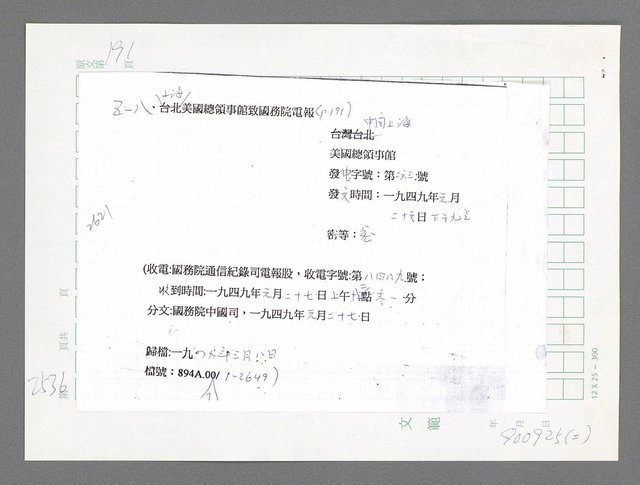 原文第191頁
上海
五-八、台北美國總領事館致國務院電報(p.191)
中國上海
台灣台北
美國總領事館
發電字號：第 號
發文時間：一九四九年元月
二十六日下午九点
密等：
2621
(收電:國務院通信紀錄司電報股，收電字號:第八四八九號；
收到時間:一九四九年元月二十七日上午 點 一分
分文:國務院中國司，一九四九年元月二十七日
歸檔:一九 年三月八日
檔號：894A.00/1-2649)
頁
頁共
第
2536
12 X 25 ~ 300
文 範
年 月 日
900925(二)